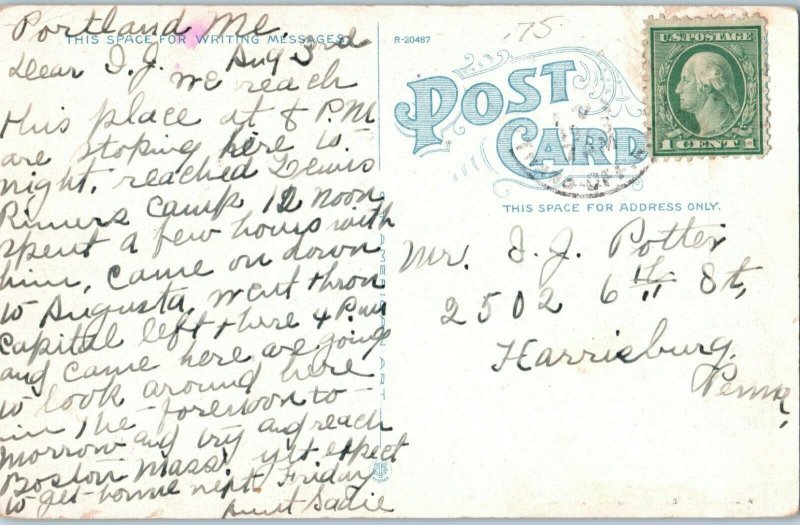 Portland Me.
THIS SPACE FOR WRITING MESSAGES
Aug 3rd
Dear I. J. we reach
this place at 8 P.M
are stoping here to-
night, reached Lewis
Camp 12 noon
spent a few hours with
him, came on down
to Augusta, went thron
Capital left there 4 P.M
and came here are going
to look around here
in the forenoon to-
morrow and try and reach
Boston Mass yet expect
to get home next Friday
Aunt Sadie
AMERICAN ART
R-20487
.75
POST
CARD
THIS SPACE FOR ADDRESS ONLY.
U.S. POSTAGE
1 CENT 1
Mr. I. J. Potter
2502 6th St,
Harrisburg
Penna,